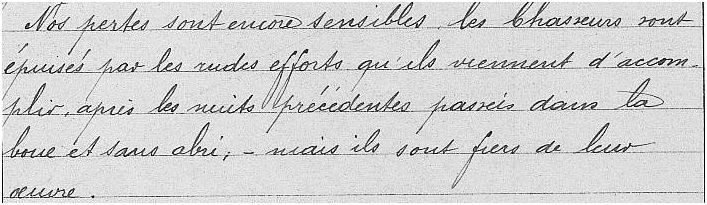 Nos pertes sont encore sensibles, les Chasseurs sont
épuisés par les rudes efforts qu'ils viennent d'accom-
plir, après les nuits précédentes passées dans la
boue et sans abri; - mais ils sont fiers de leur
œuvre.